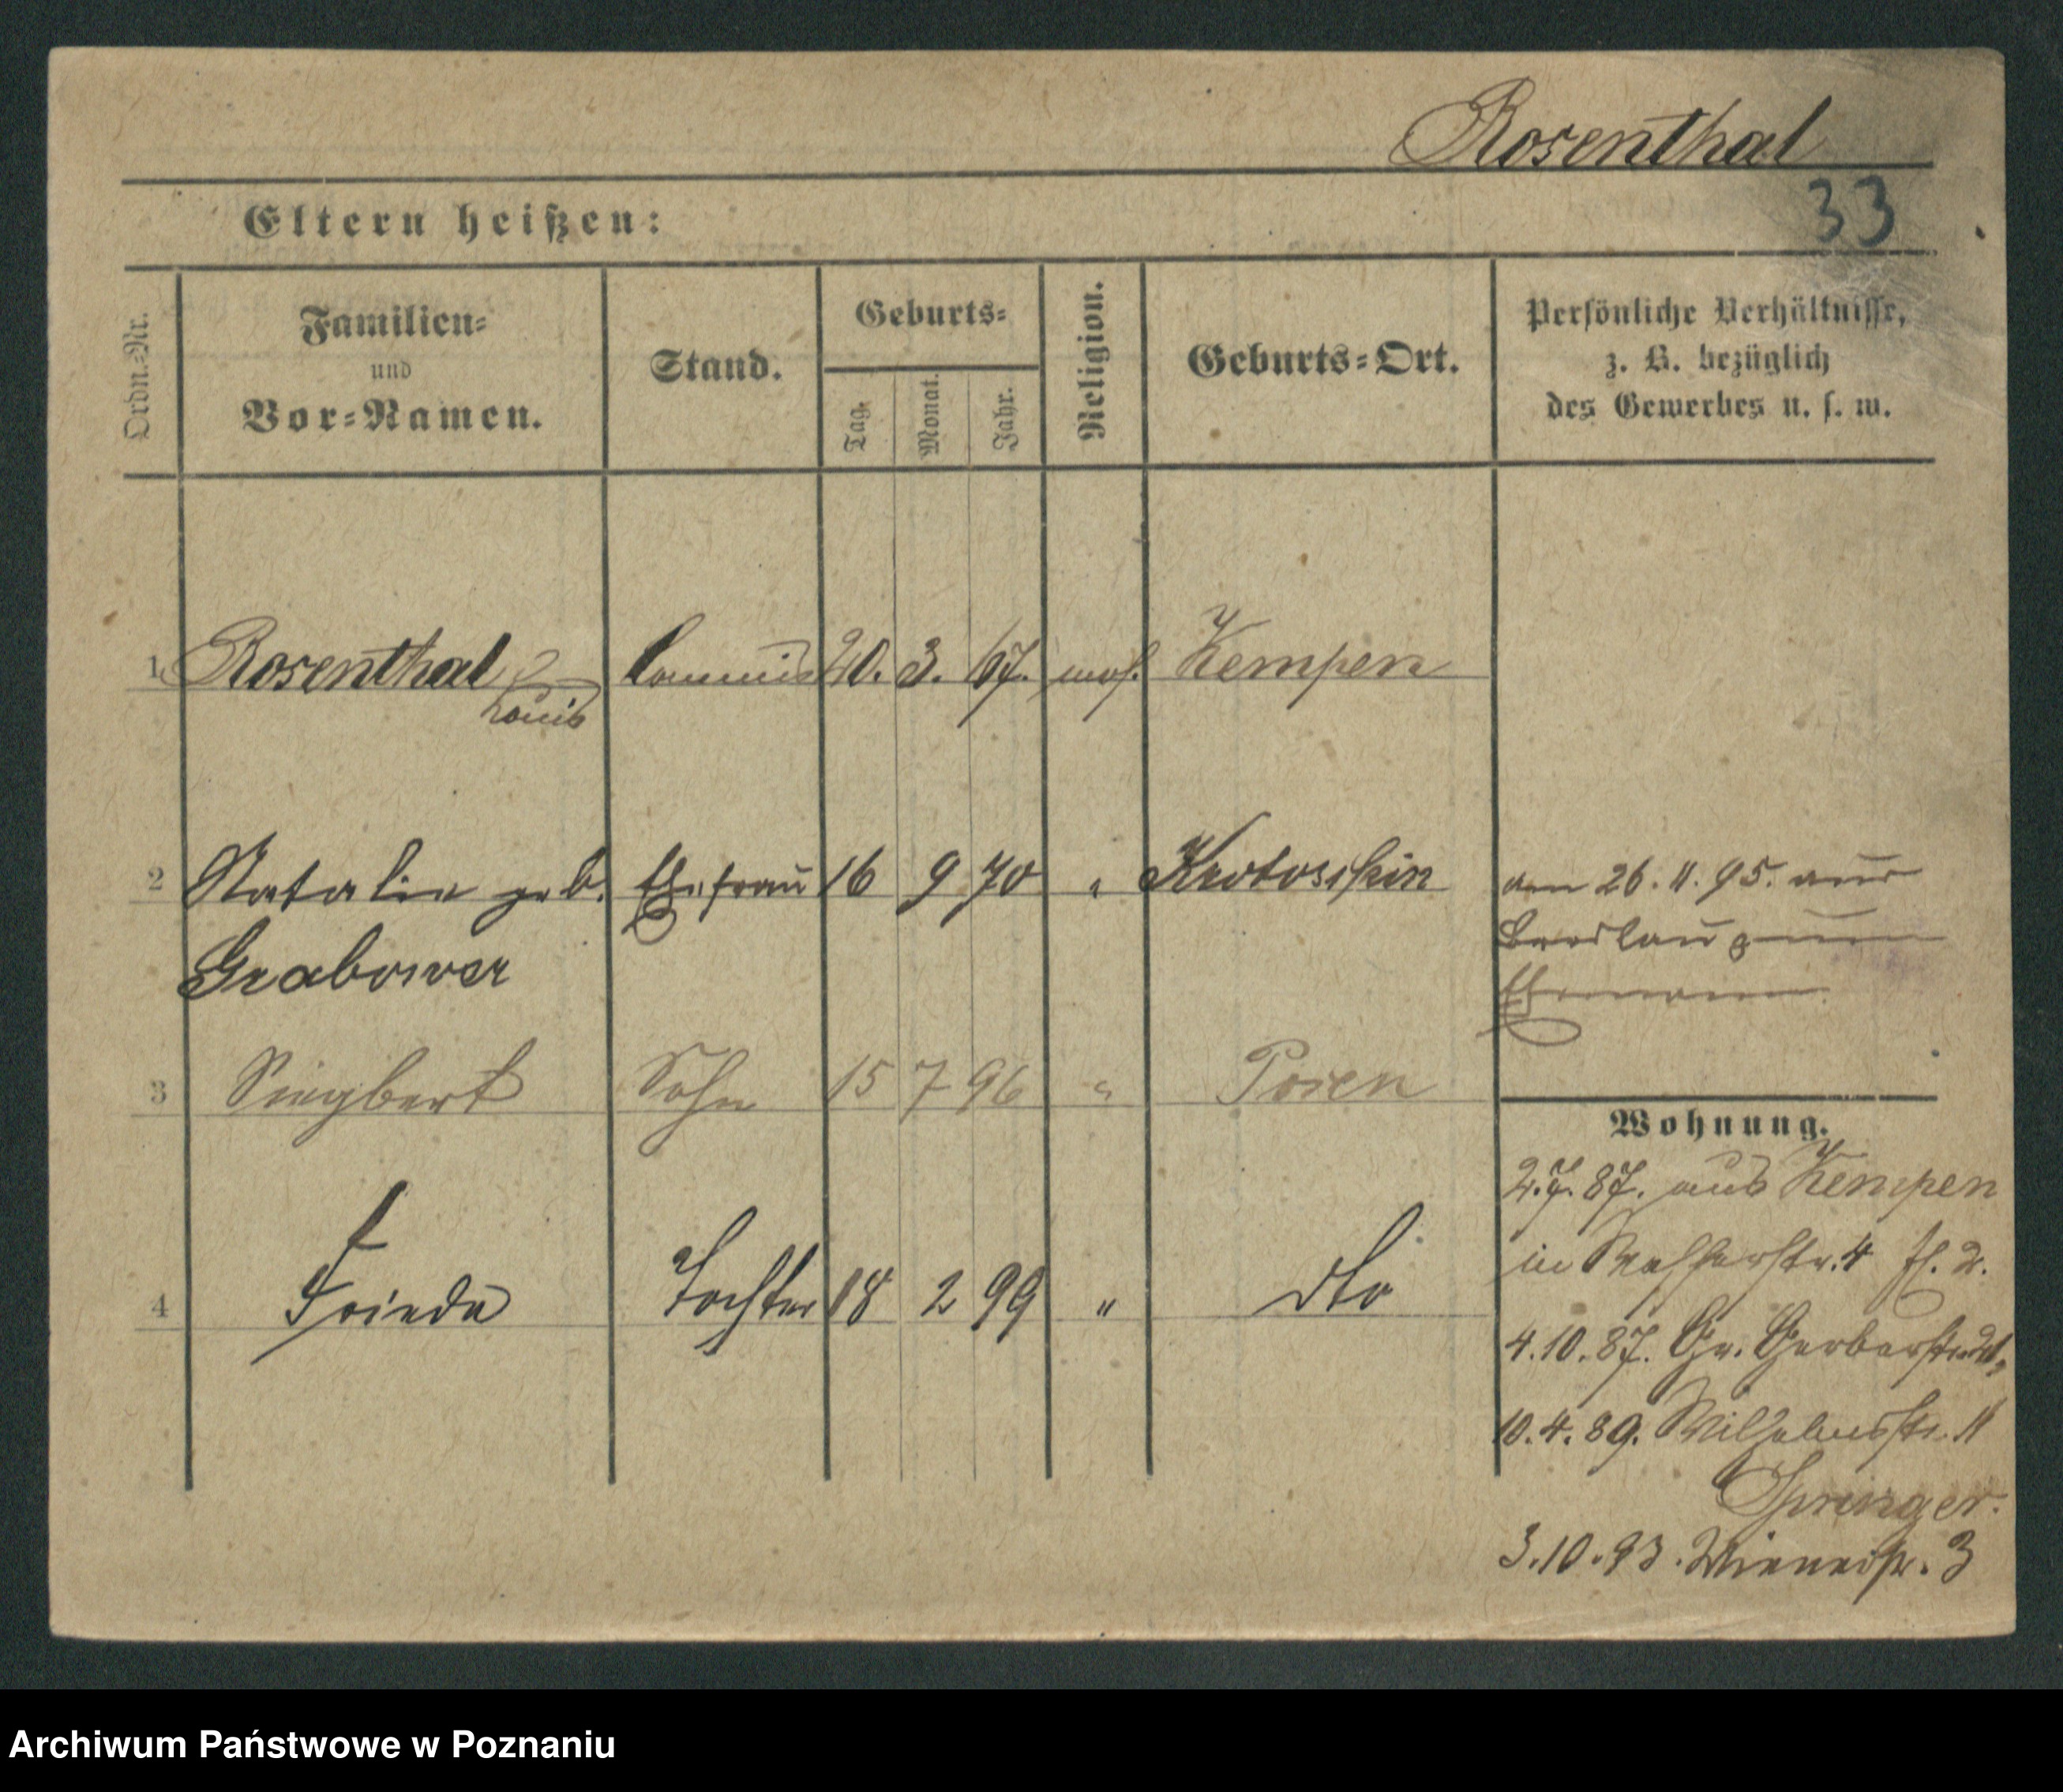 Rosenthal
33
Eltern heißen:
Ordn.=Nr.
Familien=
und
Vor=Namen.
Stand.
Geburts=
Tag.
Monat.
Jahr.
Religion.
Geburts=Ort.
Persönliche Verhältnisse,
z. B. bezüglich
des Gewerbes u. s. w.
1 Rosenthal Commis 20. 3. 67. mos. Kempen
Louis
2 Natalie geb. Ehefrau 16 9 70 " Krotoschin
Grabower
am 26. 11. 95. aus
Breslau zum
Ehemann.
3 Siegbert Sohn 15 7 96 " Posen
4 Frieda Tochter 18 2 99 " dto
Wohnung.
2.7.87. aus Kempen
in Wasserstr. 4
4.10.87. Gr. Gerberstr.
10.4.89. Wilhelmsstr. 11
Springer.
3.10.93. Wienerstr. 3
Archiwum Państwowe w Poznaniu